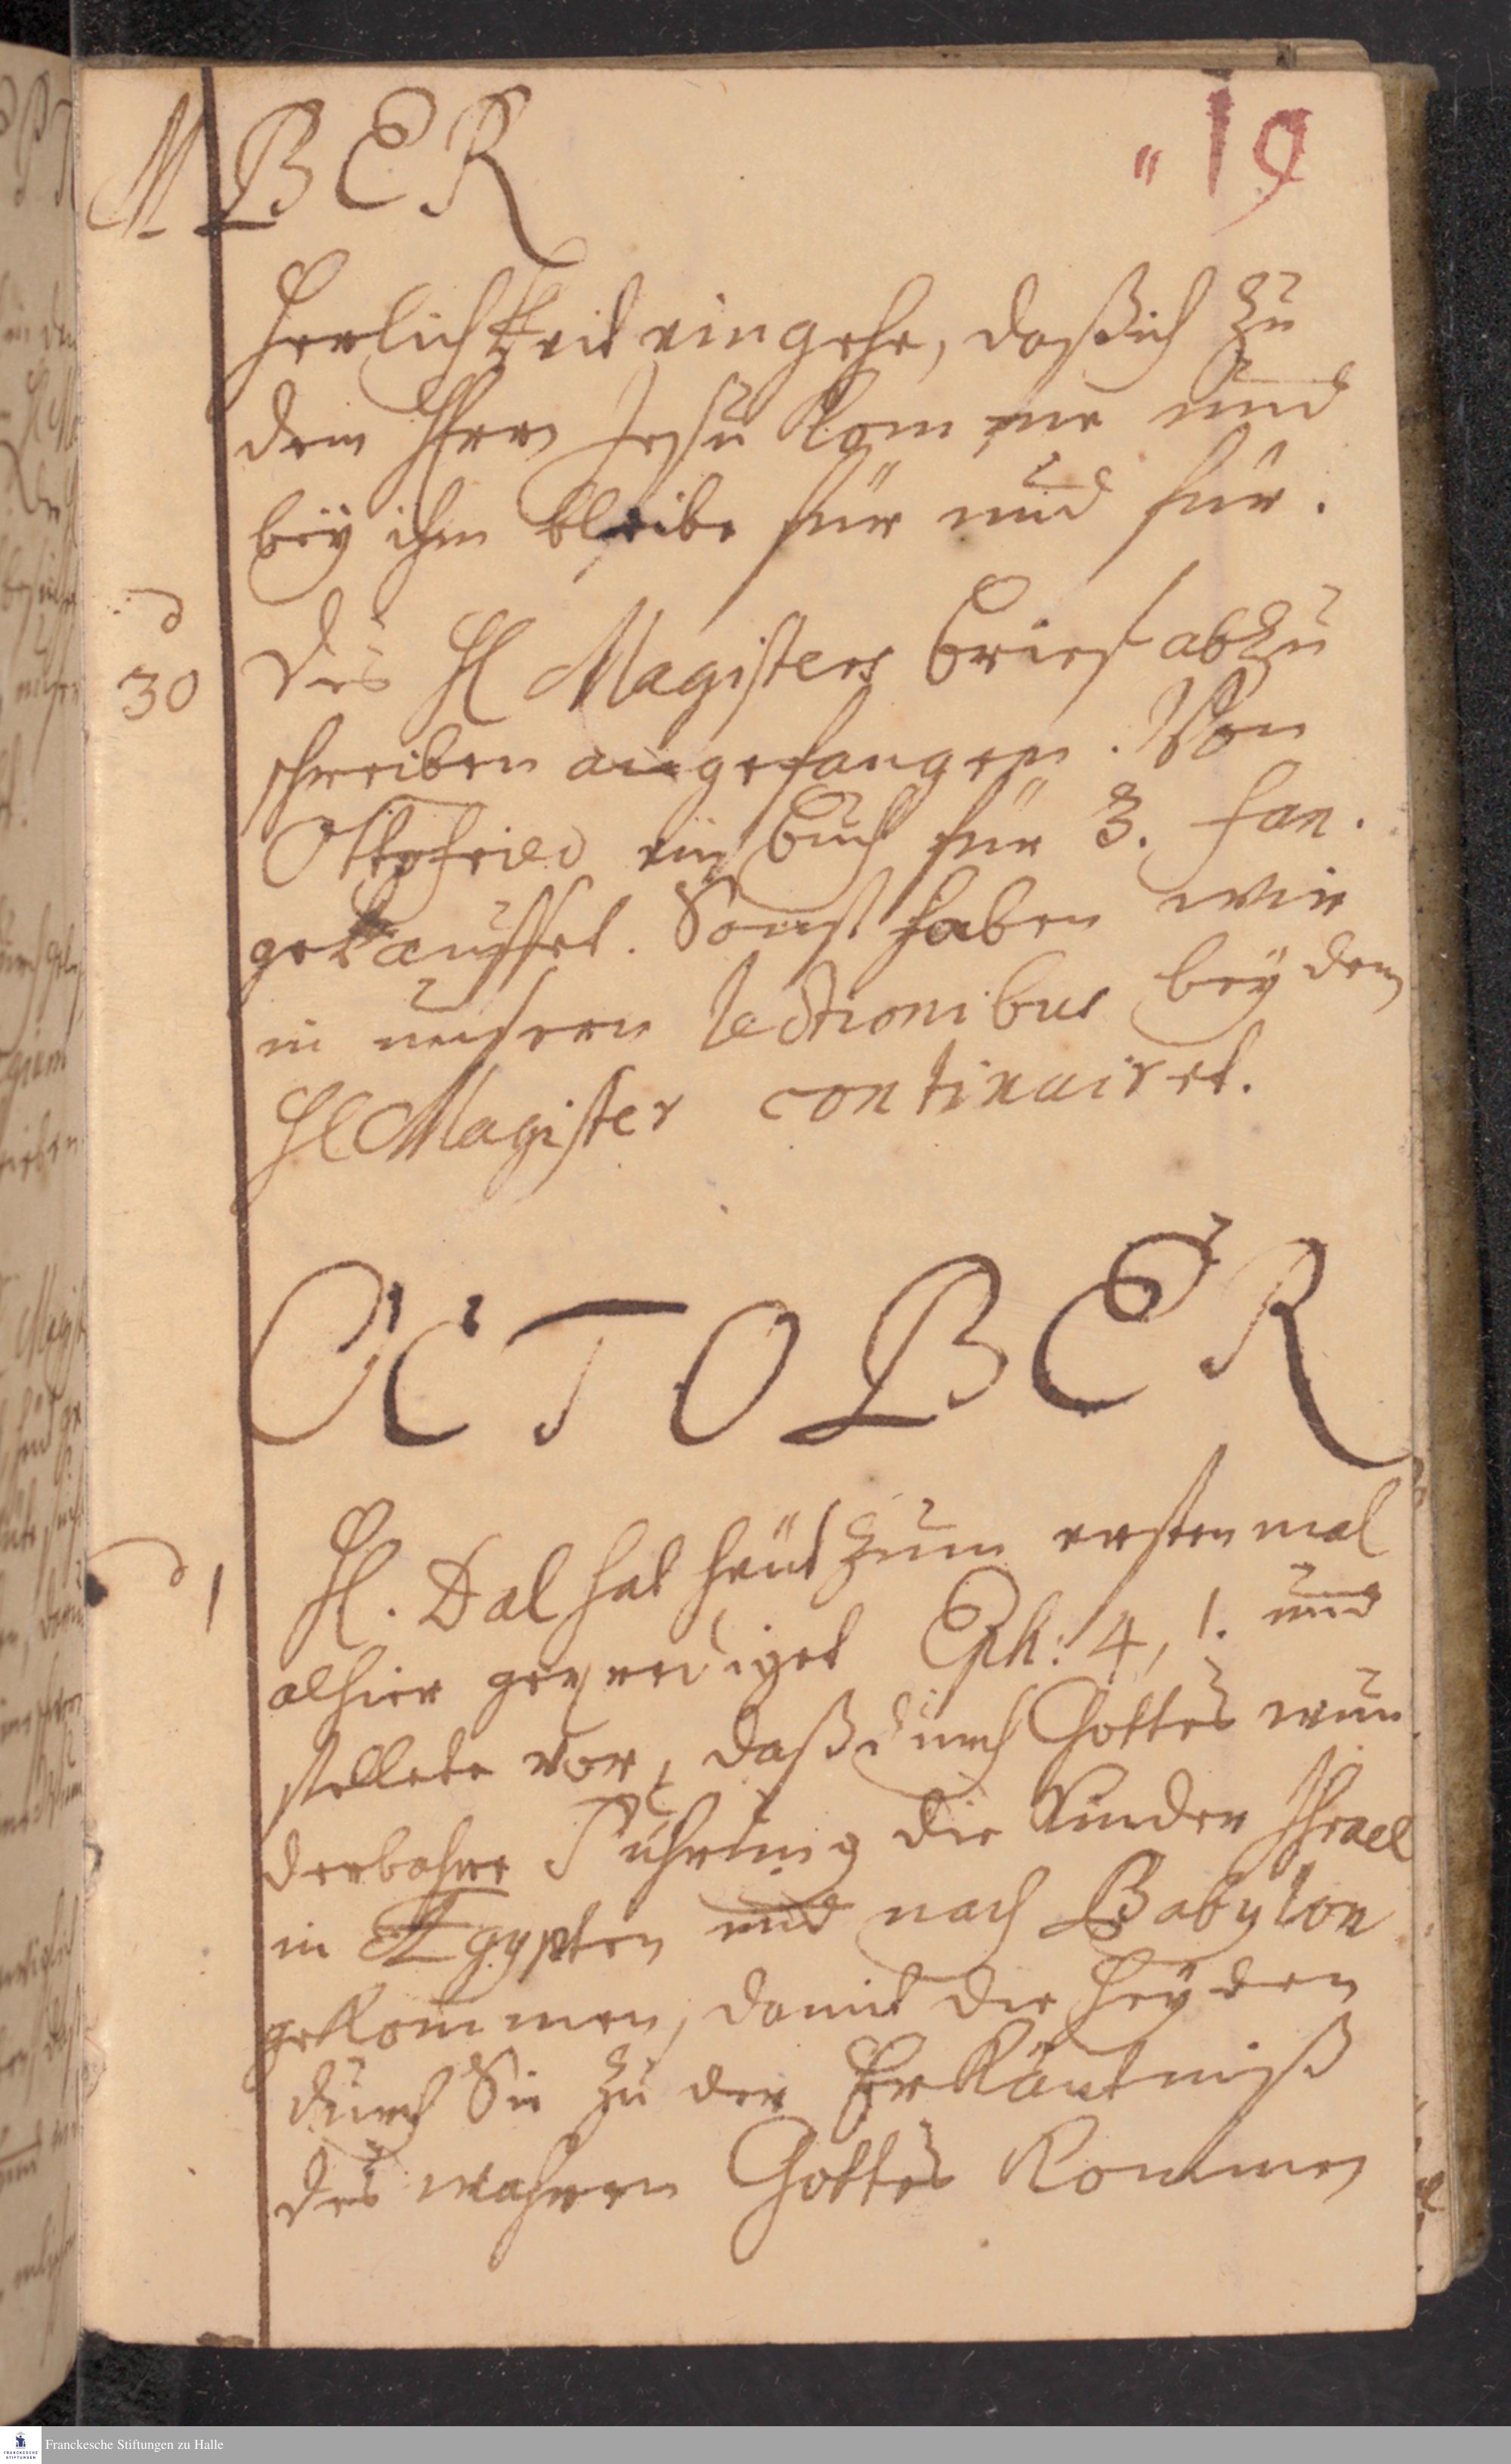 MBER
" 19
Herlichkeit eingehe, daß ich zu
dem Herrn Jesu komme und
bey ihm bleibe für und für.
d
30
Des H Magisters Brief abzu
schreiben angefangen. Von
Ottofried ein Buch für 3. fan.
gekauffet. Sonst haben wir
in unsern lectionibus bey dem
H Magister continuiret.
OCTOBER
d 1
H. Dal hat heut zum ersten mal
alhier geprediget Eph: 4, 1. und
stellete vor, daß durch Gottes wun
derbahre Führung die Kinder Israel
in Egypten und nach Babylon
gekommen, damit die Heyden
durch Sie zu der Erkäntniß
des wahren Gottes kommen
Franckesche Stiftungen zu Halle